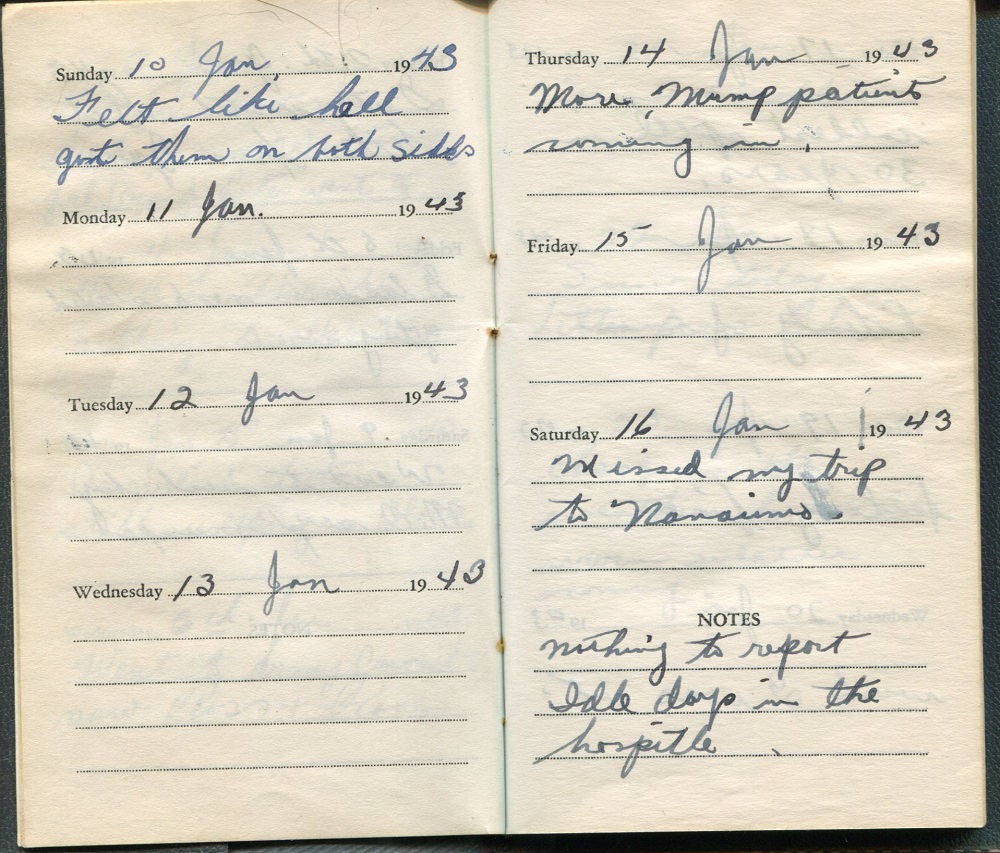 Sunday 10 Jan, 1943
Felt like hell
got them on both sides
Monday 11 Jan. 1943
Tuesday 12 Jan 1943
Wednesday 13 Jan 1943
Thursday 14 Jan 1943
More Mump patients
coming in.
Friday 15 Jan 1943
Saturday 16 Jan 1943
Missed my trip
to Nanaimo.
NOTES
nothing to report
Idle days in the
hospitle